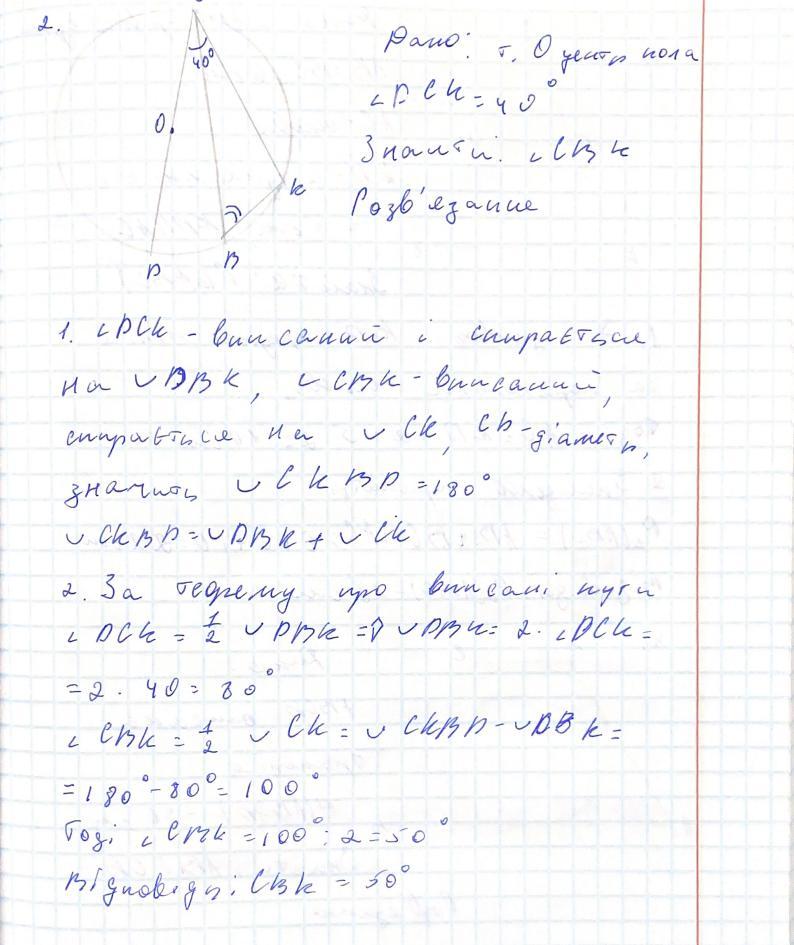 2.
40°
O
K
D
B
Дано: т. O центр кола
∠DCK = 40°
Знайти: ∠CBK
Розв'язание
1. ∠DCK - вписаний і спирається
на ◡DBK, ∠CBK - вписаний,
спирається на ◡CK, CD - діаметр,
значить ◡CKBD = 180°
◡CKBD = ◡DBK + ◡CK
2. За теорему про вписані кути
∠DCK = 1/2 ◡DBK => ◡DBK = 2 · ∠DCK =
= 2 · 40 = 80°
∠CBK = 1/2 ◡CK = ◡CKBD - ◡DBK =
= 180° - 80° = 100°
Тоді ∠CBK = 100° : 2 = 50°
Відповідь: CBK = 50°